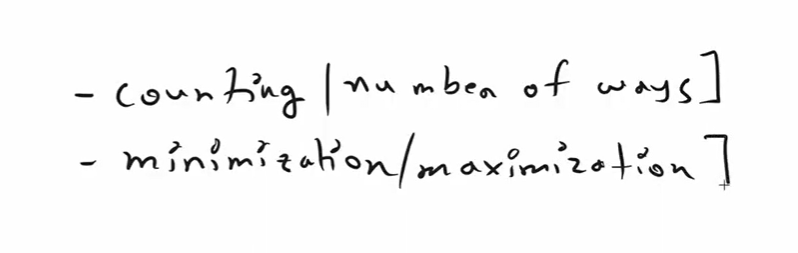 - counting | number of ways]
- minimization/maximization]